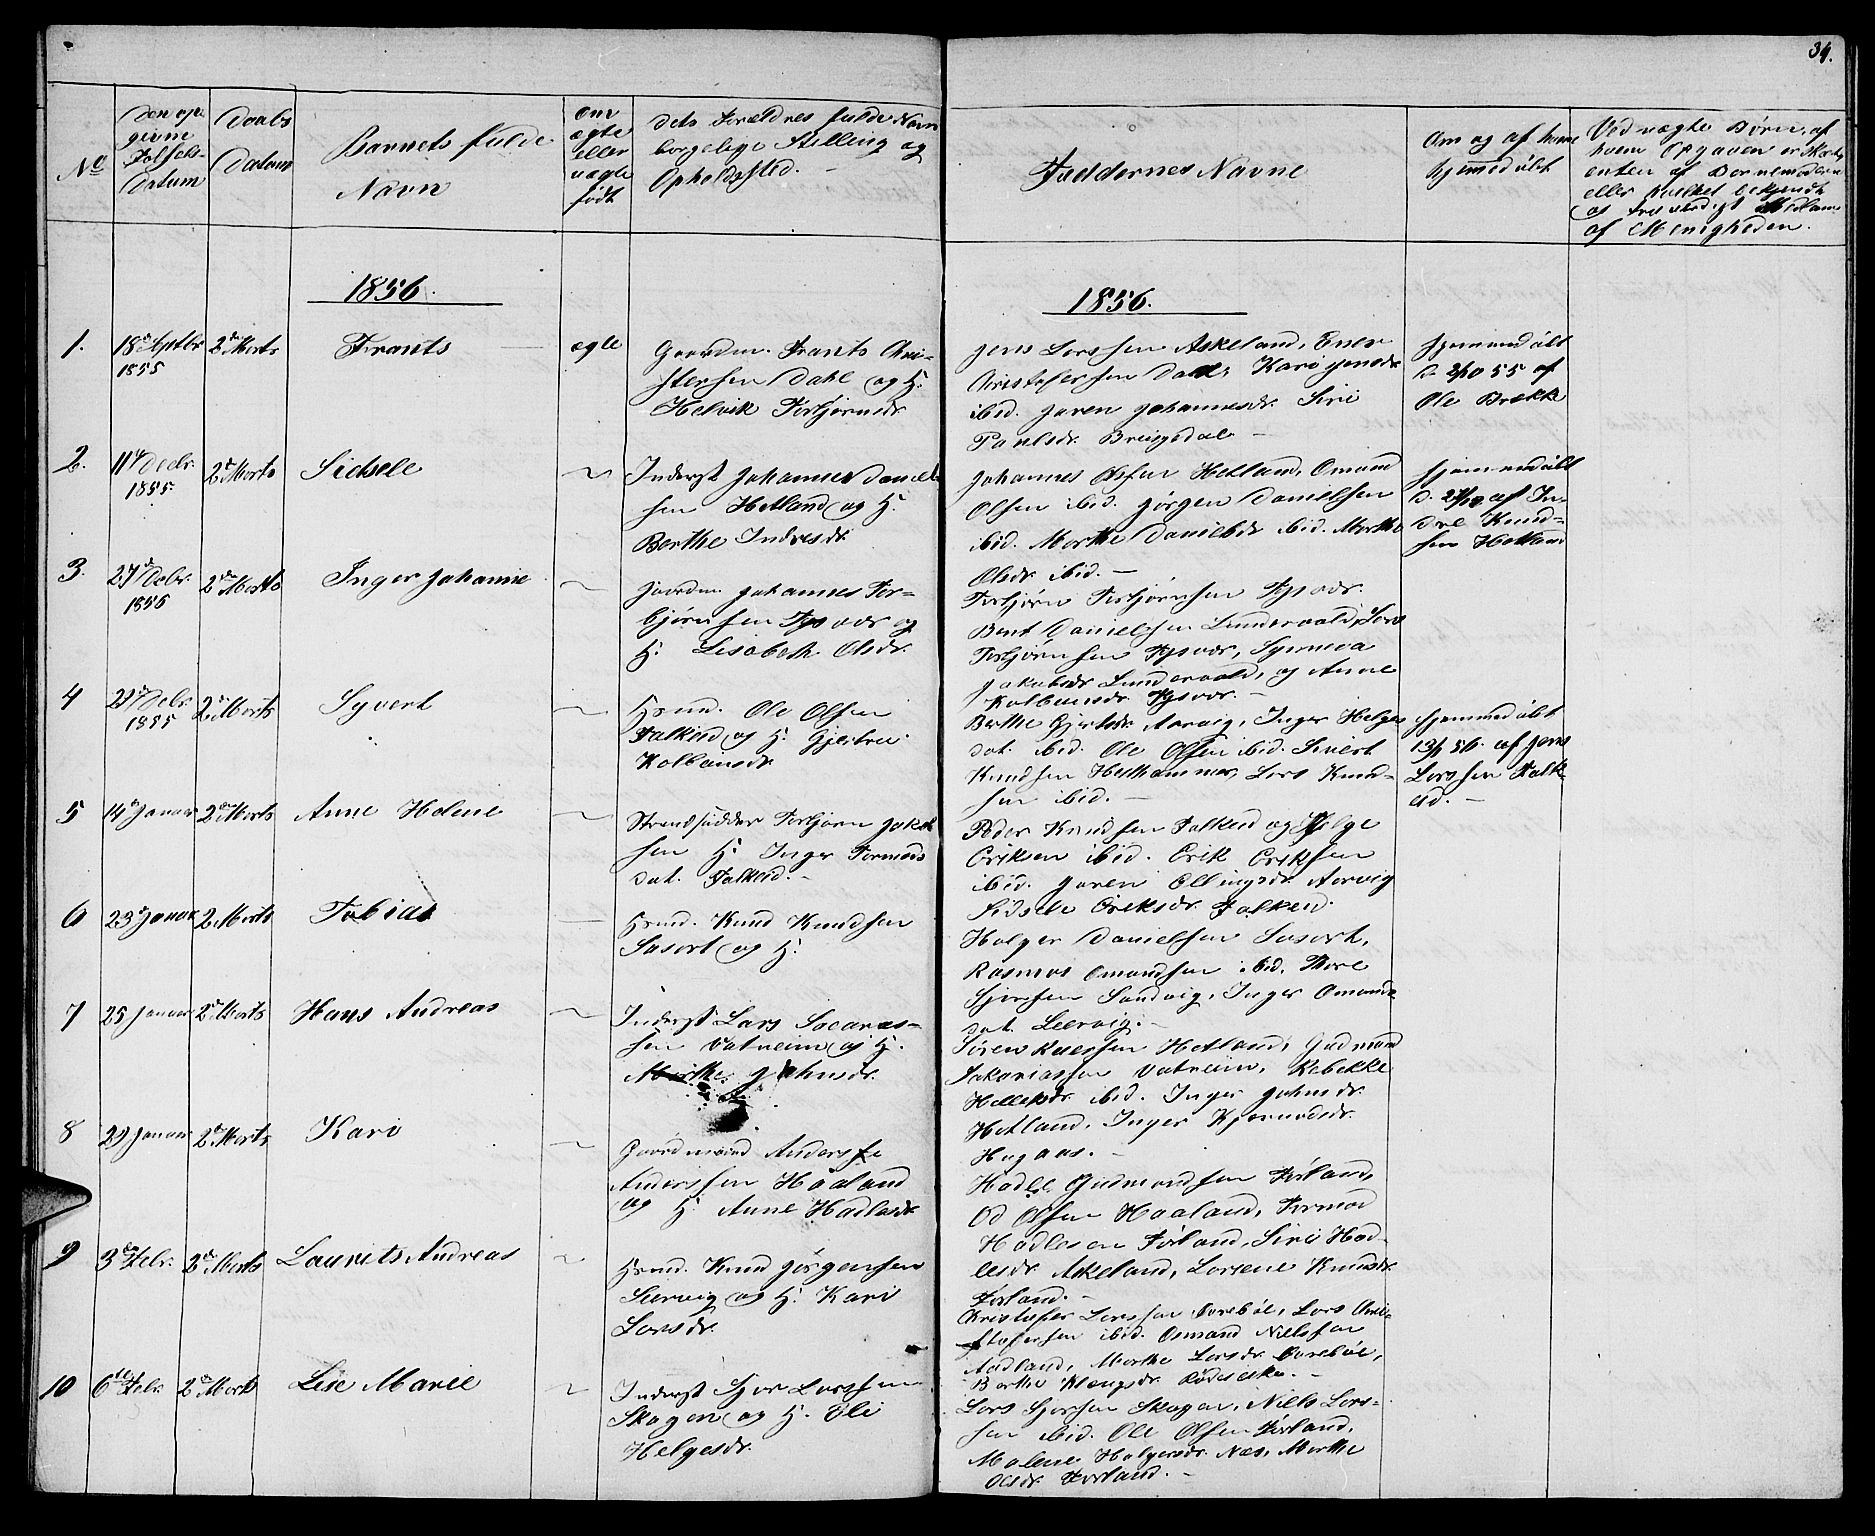 34.
No
Den op-
givne
Fødsels-
Datum
Daabs
Datum
Barnets fulde
Navn
Om
ægte
eller
uægte
født
Dets Forældres fulde Navn
borgelige Stilling og
Opholdssted. -
Faddernes Navne
Om og af hvem
hjemmedøbt
Ved uægte Børn, af
hvem Opgaven er skeet,
enten af Barnemoderen
eller hvilket bekjendt
og troværdigt Medlem
af Menigheden.
1856.
1856.
1.
18de Septbr
1855
2de Marts
Frants
ægte
Gaardm. Frants Chri-
stensen Dahl og H.
Helvik Torbjørnsdr.
Jens Larssen Askeland, Ener
Christofersen Dahl, Kari Jensdr
ibid. Jaren Johannesdr. Siri
Paulsdr. Bringedal -
Hjemmedøbt
d. 2/10 55 af
Ole Brække
2.
11te Decbr.
1855.
2de Marts
Sidsele
Inderst Johannes Daniel-
sen Hetland og H.
Berthe Indresdr.
Johannes Olsen Hetland, Omund
Olsen ibid. Jørgen Danielsen
ibid. Marthe Danielsdr. ibid. Marthe
Olsdr. ibid. -
Hjemmedøbt
af In-
dre Knud-
sen Hetland
3.
27de Debr.
1856
2de Marts
Inger Johanne
Gaardm. Johannes Tor-
bjørnsen Tysvær og
H. Lisabeth Olsdr.
Torbjørn Torbjørnsen Tysvær.
Bent Danielsen Lundervold, Lars
Torbjørnsen Tysvær, Synneva
Jakobsdr. Lundervold, og Anne
Kolbeinsdr. Tysvær. -
4
29de Debr.
1855
2de Marts
Syvert
Hsmd. Ole Olsen
Falkeid og H. Gjertrue
Kolbansdr.
Berthe Gjertsdr. Aarvig, Inger Helges
dat. ibid. Ole Olsen ibid. Sivert
Knudsen Hesthammer, Lars Knud-
sen ibid. -
Hjemmedøbt
13/1 56. af Jens
Larssen Falk-
eid. -
5
14de Januar
2de Marts
Anne Helene
Strandsidder Torbjørn Jakob
sen H. Inger Tormods
dat. Falkeid. -
Peder Knudsen Falkeid og Helge
Eriksen ibid. Erik Eriksen
ibid. Jaren Ellingsdr. Aarvig
Sidsele Eriksdr. Falkeid.
6
23de Januar
2de Marts
Tobias
Hsmd. Knud Knudsen
Susort og H.
Holger Danielsen Susort,
Rasmus Omundsen ibid, Tore
Sjursen Sandvig, Inger Omunds
dat. Leervig. -
7
25 Januar
2de Marts
Hans Andreas
Inderst Lars Sacarias-
sen Vatneim og H.
Marthe Johnsdr.
Søren Hetland, Gudmund
Sakariassen Vatneim, Rebekke
Hellesdr. ibid. Inger Johnsdr.
Hetland, Inger
Hugaas. -
8
29 Januar
2de Marts
Kari
Gaardmand Anders
Anderssen Haaland
og H. Anne Hadlesdr.
Hadle Gudmundsen Førland,
Od Olsen Haaland, Tormod
Hadlesen Førland, Siri Had-
lesdr. Askeland, Larsene Knudsdr.
Førland. -
9
3de Febr.
2de Marts
Laurits Andreas
Hsmd. Knud Jørgensen
Leervig og H. Kari
Larsdr.
Kristofer Larssen Øvrebøe, Lars Chri-
stofersen ibid. Osmund Nielssen
Aadland, Marthe Larsdr. Øvrebøe,
Berthe Klængsdr. -
10
6te Febr.
2de Marts
Lise Marie
Inderst Sjur Larssen
Skogen og H. Eli
Helgesdr.
Lars Sjursen Skogen, Niels Lars-
sen ibid. Ole Olsen Førland,
Malene Holgersdr. Næs, Marthe
Olsdr. Førland. -